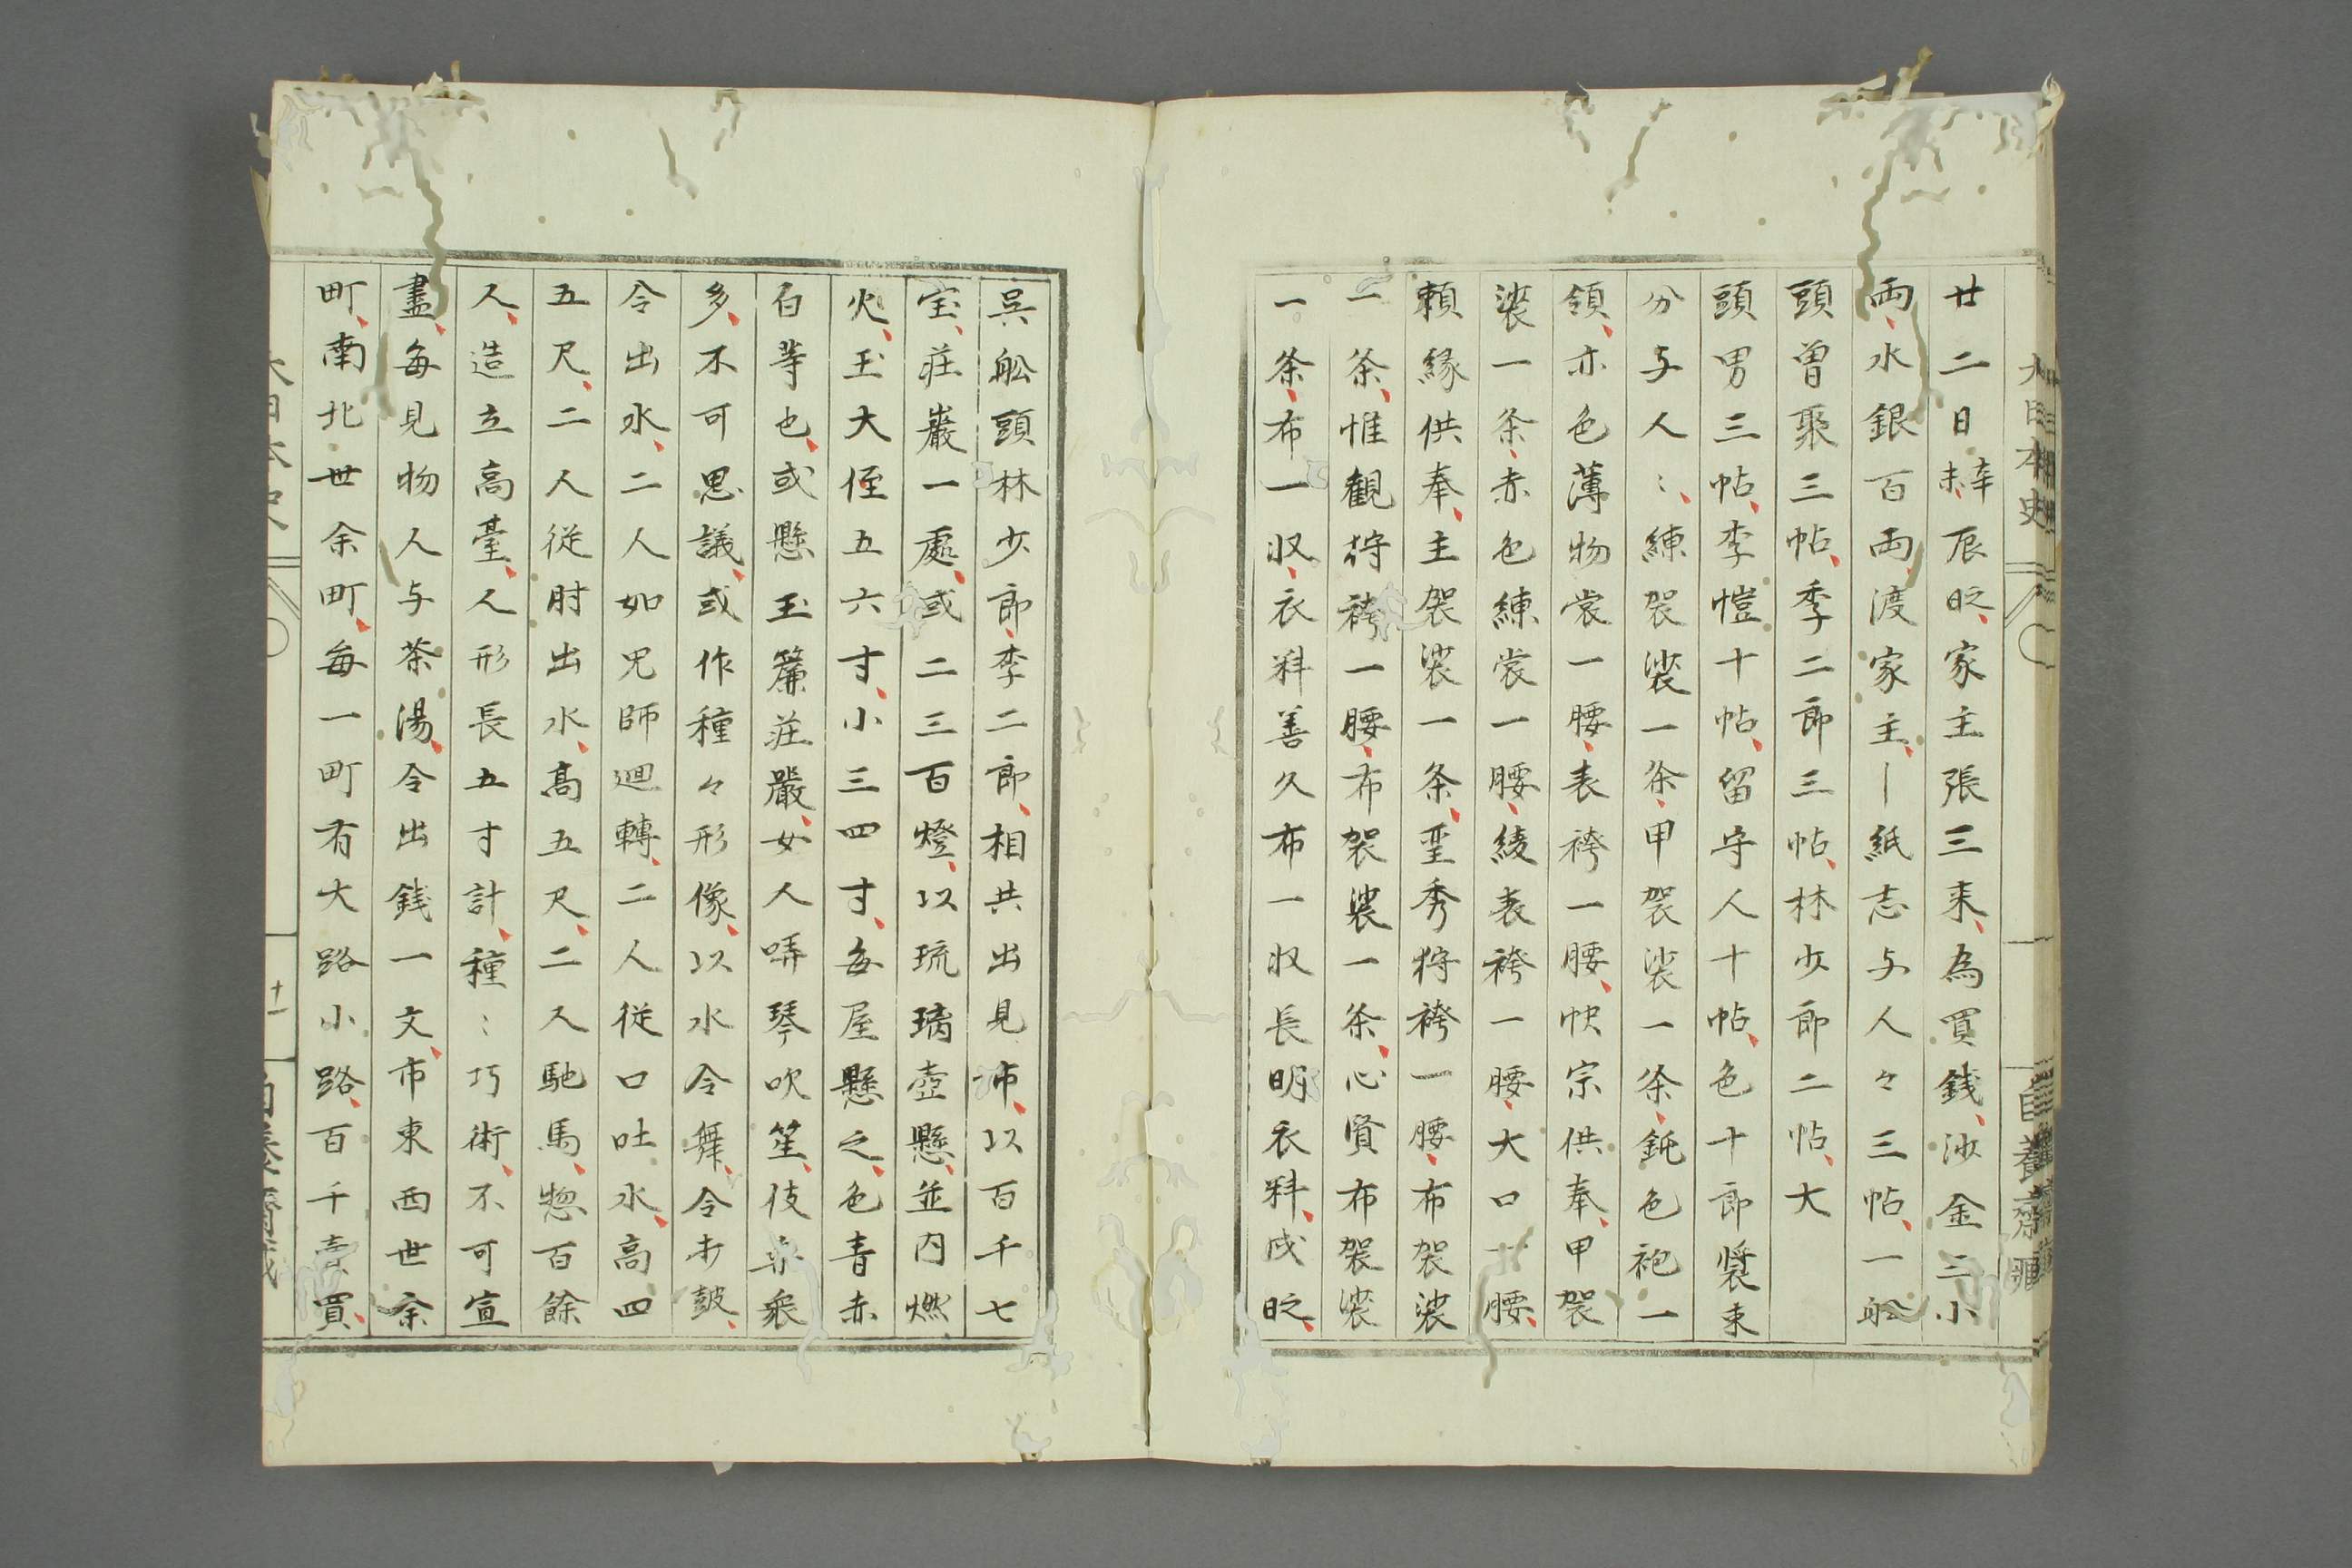 廿二日辛未辰時、家主張三来、為買銭、沙金三小
両、水銀百両、渡家主、｜紙志与人々三帖、一船
頭曽聚三帖、李二郎三帖、林少郎二帖、大
頭男三帖、李愷十帖、留守人十帖、色十郎装束
分与人〻、練袈裟一条、甲袈裟一条、鈍色袍一
領、亦色薄物裳一腰、表袴一腰、快宗供奉、甲袈
裟一条、赤色練裳一腰、綾表袴一腰、大口一腰、
頼縁供奉、主袈裟一条、聖秀狩袴一腰、布袈裟
一条、惟観狩袴一腰、布袈裟一条、心賢布袈裟
一条、布一収、衣料善久布一収長明衣料、戌時、
呉船頭林少郎、李二郎、相共出見市、以百千七
宝、荘巌一處、或二三百燈、以琉璃壺懸、並内燃
火、玉大侄五六寸、小三四寸、毎屋懸之、色青赤
白等也、或懸玉簾荘嚴、女人哢琴吹笙、伎亦衆
多、不可思議、或作種々形像、以水令舞、令打鼓、
令出水、二人如咒師廻轉、二人従口吐水、高四
五尺、二人従肘出水、高五尺、二人馳馬、惣百餘
人、造立高臺、人形長五寸計、種〻巧術、不可宣
盡、毎見物人与茶湯、令出銭一文、市東西世余
町、南北世余町、毎一町有大路小路、百千売買、
大日本史
十一